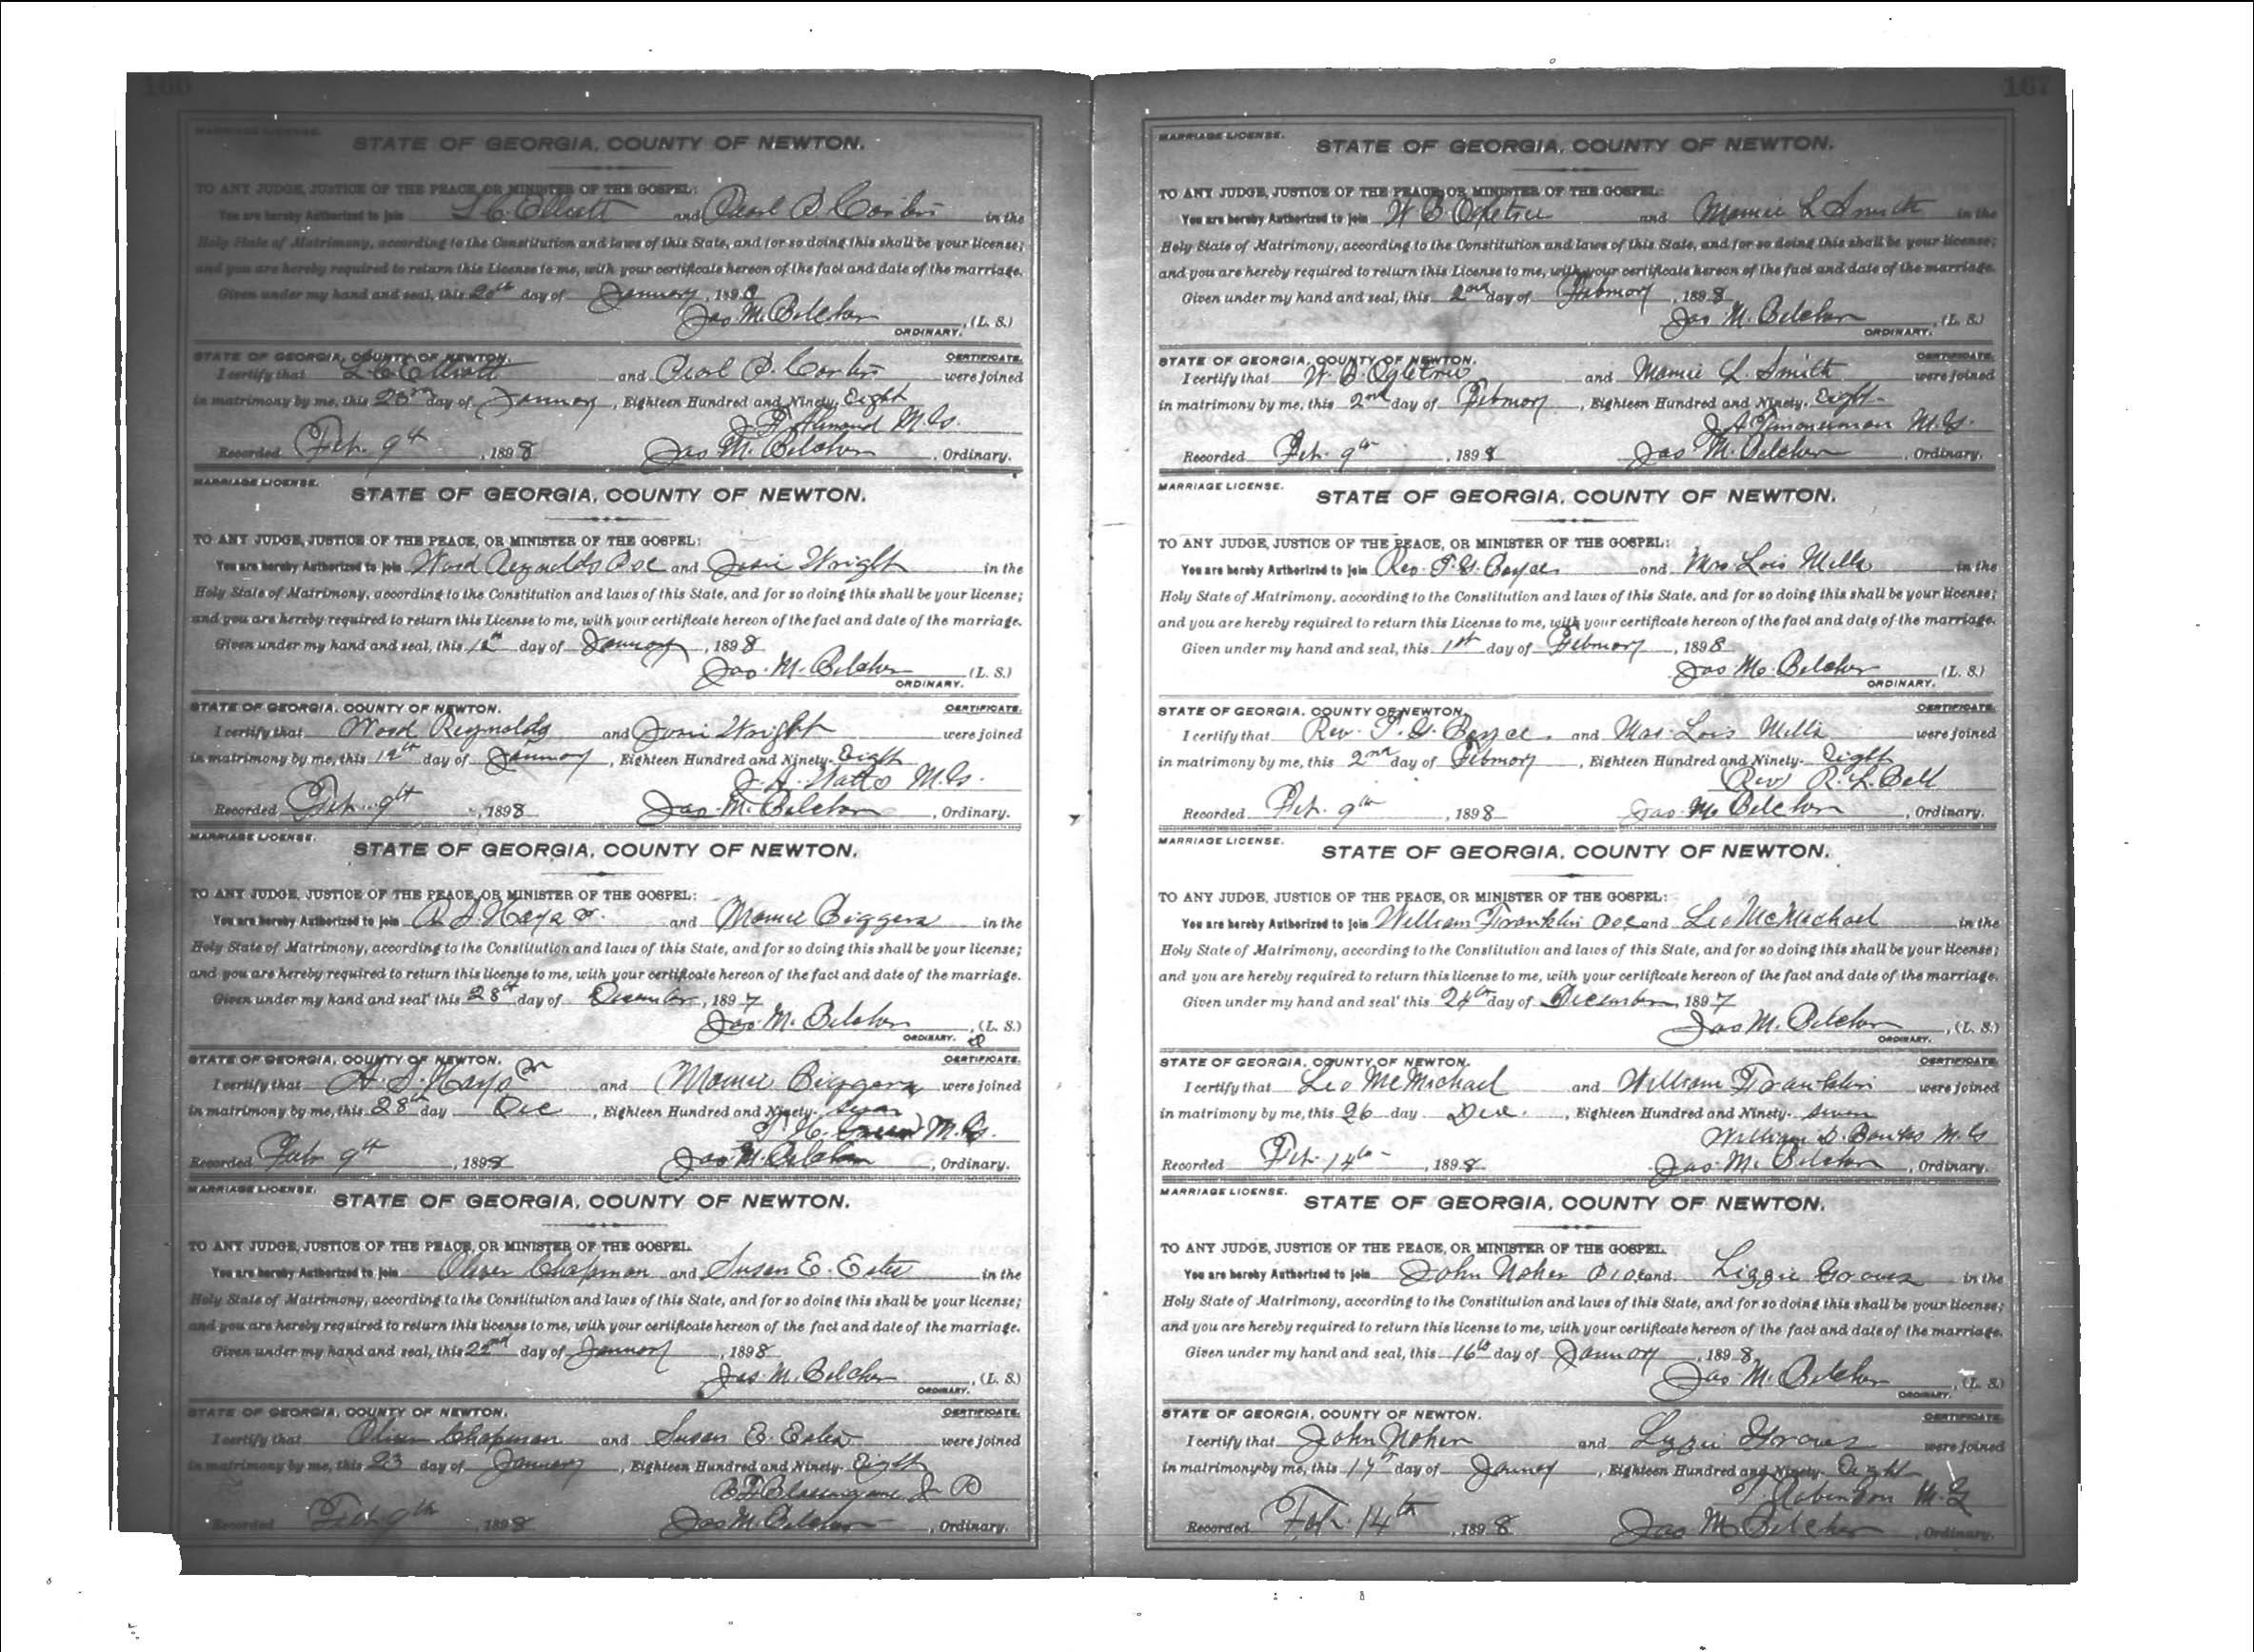 166
MARRIAGE LICENSE.
STATE OF GEORGIA, COUNTY OF NEWTON.
TO ANY JUDGE, JUSTICE OF THE PEACE, OR MINISTER OF THE GOSPEL:
You are hereby Authorized to join L C Elliott and Pearl in the
Holy State of Matrimony, according to the Constitution and laws of this State, and for so doing this shall be your license;
and you are hereby required to return this License to me, with your certificate hereon of the fact and date of the marriage.
Given under my hand and seal, this 20th day of January, 1898
Jas M. Belcher, (L. S.)
ORDINARY.
STATE OF GEORGIA, COUNTY OF NEWTON. CERTIFICATE.
I certify that L C Elliott and were joined
in matrimony by me, this 23rd day of January, Eighteen Hundred and Ninety-Eight
Almand M.G.
Recorded Feb. 9th, 1898 Jas M. Belcher, Ordinary.
MARRIAGE LICENSE.
STATE OF GEORGIA, COUNTY OF NEWTON.
TO ANY JUDGE, JUSTICE OF THE PEACE, OR MINISTER OF THE GOSPEL:
You are hereby Authorized to join Word Reynolds Col and Josie Wright in the
Holy State of Matrimony, according to the Constitution and laws of this State, and for so doing this shall be your license;
and you are hereby required to return this License to me, with your certificate hereon of the fact and date of the marriage.
Given under my hand and seal, this 12th day of January, 1898
Jas. M. Belcher (L. S.)
ORDINARY.
STATE OF GEORGIA, COUNTY OF NEWTON. CERTIFICATE.
I certify that Word Reynolds and Josie Wright were joined
in matrimony by me, this 12th day of January, Eighteen Hundred and Ninety-Eight
J. A. Watts M.G.
Recorded Feb. 9th, 1898 Jas. M. Belcher, Ordinary.
MARRIAGE LICENSE.
STATE OF GEORGIA, COUNTY OF NEWTON.
TO ANY JUDGE, JUSTICE OF THE PEACE, OR MINISTER OF THE GOSPEL:
You are hereby Authorized to join Hays Jr. and Mamie Biggers in the
Holy State of Matrimony, according to the Constitution and laws of this State, and for so doing this shall be your license;
and you are hereby required to return this license to me, with your certificate hereon of the fact and date of the marriage.
Given under my hand and seal this 28th day of December, 1897
Jas. M. Belcher, (L. S.)
ORDINARY.
STATE OF GEORGIA, COUNTY OF NEWTON. CERTIFICATE.
I certify that Hays Jr and Mamie Biggers were joined
in matrimony by me, this 28th day Dec, Eighteen Hundred and Ninety-Seven
M.G.
Recorded Feb 9th, 1898 Jas. M. Belcher, Ordinary.
MARRIAGE LICENSE.
STATE OF GEORGIA, COUNTY OF NEWTON.
TO ANY JUDGE, JUSTICE OF THE PEACE, OR MINISTER OF THE GOSPEL.
You are hereby Authorized to join Oliver Chapman and Susan E. Estes in the
Holy State of Matrimony, according to the Constitution and laws of this State, and for so doing this shall be your license;
and you are hereby required to return this license to me, with your certificate hereon of the fact and date of the marriage.
Given under my hand and seal, this 22nd day of January, 1898
Jas. M. Belcher, (L. S.)
ORDINARY.
STATE OF GEORGIA, COUNTY OF NEWTON. CERTIFICATE.
I certify that Oliver Chapman and Susan E. Estes were joined
in matrimony by me, this 23 day of January, Eighteen Hundred and Ninety-Eight
Blasingame J P
Recorded Feb. 9th, 1898 Jas M. Belcher, Ordinary.
167
MARRIAGE LICENSE.
STATE OF GEORGIA, COUNTY OF NEWTON.
TO ANY JUDGE, JUSTICE OF THE PEACE, OR MINISTER OF THE GOSPEL:
You are hereby Authorized to join W B Ogletree and Mamie L Smith in the
Holy State of Matrimony, according to the Constitution and laws of this State, and for so doing this shall be your license;
and you are hereby required to return this License to me, with your certificate hereon of the fact and date of the marriage.
Given under my hand and seal, this 2nd day of February, 1898
Jas M. Belcher, (L. S.)
ORDINARY.
STATE OF GEORGIA, COUNTY OF NEWTON. CERTIFICATE.
I certify that W. B. Ogletree and Mamie L. Smith were joined
in matrimony by me, this 2nd day of February, Eighteen Hundred and Ninety-Eight-
J A Timmerman M.G.
Recorded Feb. 9th, 1898 Jas M. Belcher, Ordinary.
MARRIAGE LICENSE.
STATE OF GEORGIA, COUNTY OF NEWTON.
TO ANY JUDGE, JUSTICE OF THE PEACE, OR MINISTER OF THE GOSPEL:
You are hereby Authorized to join Rev. T. G. Boyce and Mrs Lois Mills in the
Holy State of Matrimony, according to the Constitution and laws of this State, and for so doing this shall be your license;
and you are hereby required to return this License to me, with your certificate hereon of the fact and date of the marriage.
Given under my hand and seal, this 1st day of February, 1898
Jas M. Belcher (L. S.)
ORDINARY.
STATE OF GEORGIA, COUNTY OF NEWTON. CERTIFICATE.
I certify that Rev. T. G. Boyce. and Mrs. Lois Mills were joined
in matrimony by me, this 2nd day of February, Eighteen Hundred and Ninety-Eight
Rev R. L. Bell
Recorded Feb. 9th, 1898 Jas. M. Belcher, Ordinary.
MARRIAGE LICENSE.
STATE OF GEORGIA, COUNTY OF NEWTON.
TO ANY JUDGE, JUSTICE OF THE PEACE, OR MINISTER OF THE GOSPEL:
You are hereby Authorized to join William Franklin Col and Leo McMichael in the
Holy State of Matrimony, according to the Constitution and laws of this State, and for so doing this shall be your license;
and you are hereby required to return this license to me, with your certificate hereon of the fact and date of the marriage.
Given under my hand and seal this 24th day of December, 1897
Jas M. Belcher, (L. S.)
ORDINARY.
STATE OF GEORGIA, COUNTY OF NEWTON. CERTIFICATE.
I certify that Leo McMichael and William Franklin were joined
in matrimony by me, this 26 day Dec., Eighteen Hundred and Ninety-Seven
William D. Banks M G
Recorded Feb. 14th, 1898 Jas. M. Belcher, Ordinary.
MARRIAGE LICENSE.
STATE OF GEORGIA, COUNTY OF NEWTON.
TO ANY JUDGE, JUSTICE OF THE PEACE, OR MINISTER OF THE GOSPEL.
You are hereby Authorized to join John Col and Lizzie Graves in the
Holy State of Matrimony, according to the Constitution and laws of this State, and for so doing this shall be your license;
and you are hereby required to return this license to me, with your certificate hereon of the fact and date of the marriage.
Given under my hand and seal, this 16th day of January, 1898
Jas. M. Belcher, (L. S.)
ORDINARY.
STATE OF GEORGIA, COUNTY OF NEWTON. CERTIFICATE.
I certify that John and Lizzie Graves were joined
in matrimony by me, this 17th day of January, Eighteen Hundred and Ninety-Eight
Robinson M.G
Recorded Feb. 14th, 1898 Jas M Belcher, Ordinary.